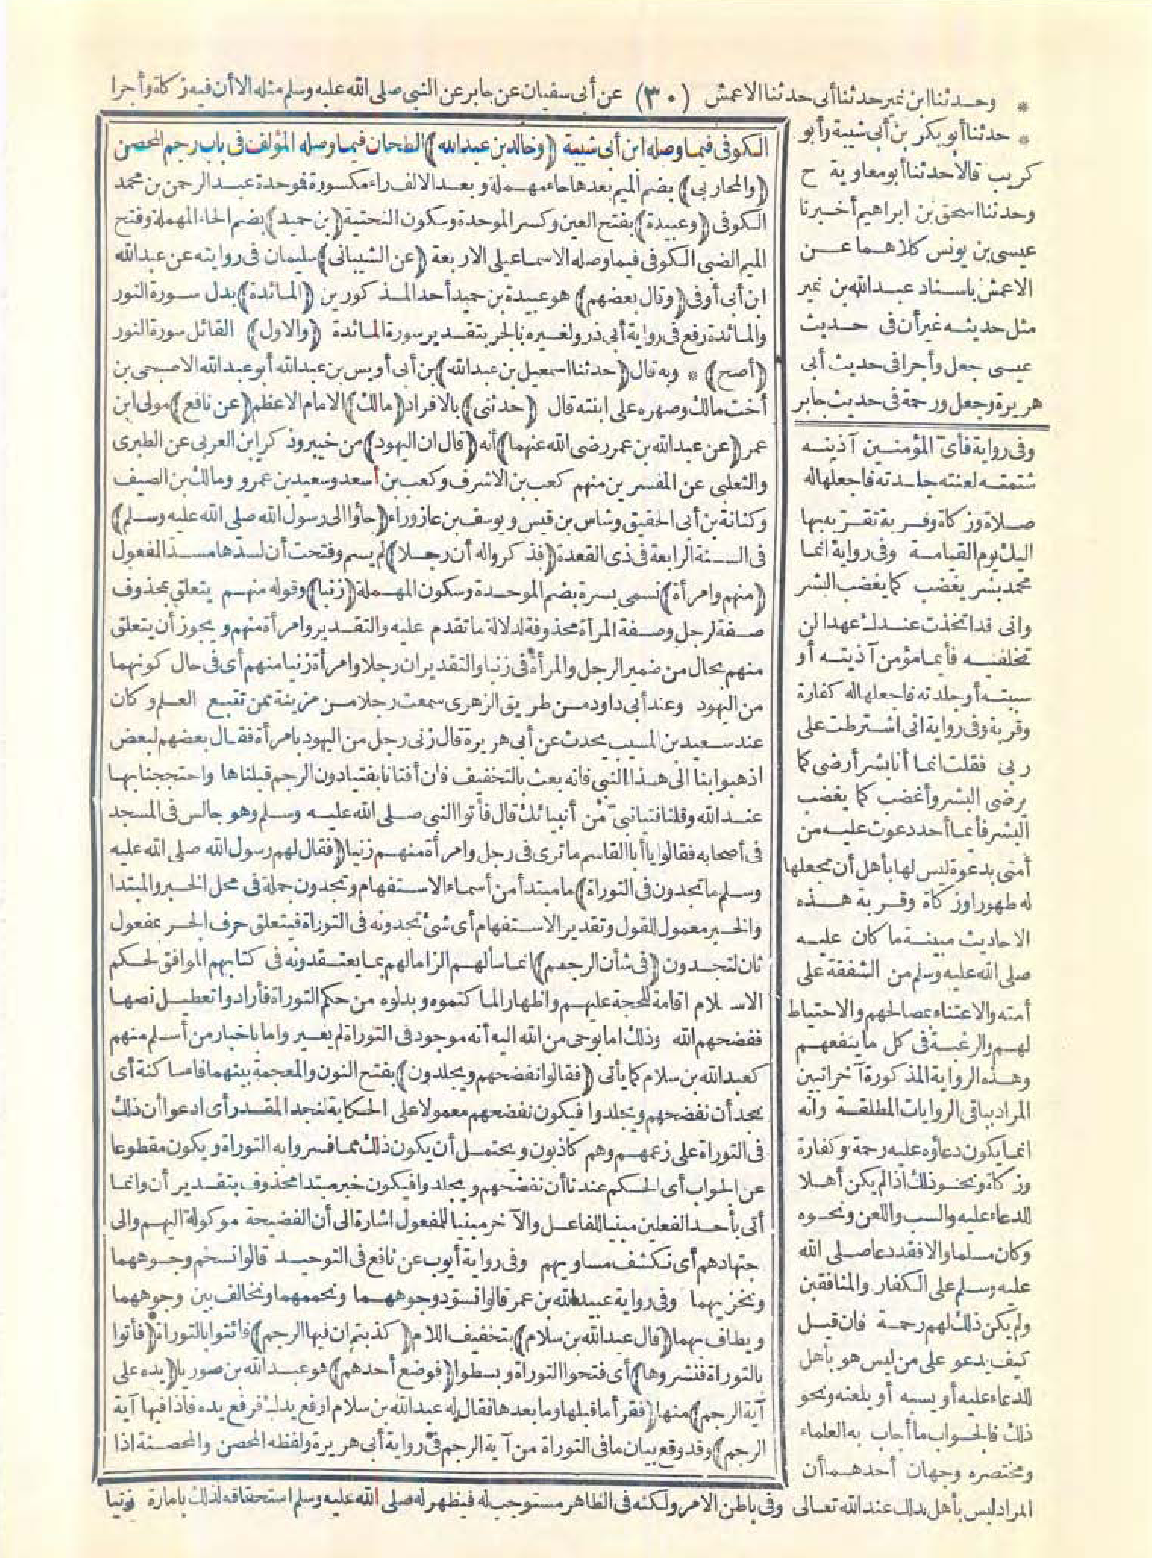 * وحدثنا ابن نمير حدثنا أبى حدثنا الاعمش (٣٠) عن أبى سفيان عن جابر عن النبى صلى الله عليه وسلم مثله الا أن فيه زكاة وأجرا
* حدثنا أبو بكر بن أبى شيبة وأبو
كريب قالا حدثنا أبو معاوية ح
وحدثنا اسحق بن ابراهيم أخبرنا
عيسى بن يونس كلاهما عن
الاعمش باسناد عبد الله بن نمير
مثل حديثه غير أن فى حديث
عيسى جعل وأجرا فى حديث أبى
هريرة وجعل ورحمة فى حديث جابر
وفى رواية فأى المؤمنين آذيته
شتمته لعنته جلدته فاجعلها له
صلاة وزكاة وقربة تقربه بها
اليك يوم القيامة وفى رواية انما
محمد بشر يغضب كما يغضب البشر
وانى قد اتخذت عندك عهدا لن
تخلفنيه فأيما مؤمن آذيته أو
سببته أو جلدته فاجعلها له كفارة
وقربة وفى رواية انى اشترطت على
ربى فقلت انما أنا بشر أرضى كما
يرضى البشر وأغضب كما يغضب
البشر فأيما أحد دعوت عليه من
أمتى بدعوة ليس لها بأهل أن تجعلها
له طهورا وزكاة وقربة هذه
الاحاديث مبينة ما كان عليه
صلى الله عليه وسلم من الشفقة على
أمته والاعتناء بمصالحهم والاحتياط
لهم والرغبة فى كل ما ينفعهم
وهذه الرواية المذكورة آخرا تبين
المراد بباقى الروايات المطلقة وانه
انما يكون دعاؤه عليه رحمة وكفارة
وزكاة ونحو ذلك اذا لم يكن أهلا
للدعاء عليه والسب واللعن ونحوه
وكان مسلما والا فقد دعا صلى الله
عليه وسلم على الكفار والمنافقين
ولم يكن ذلك لهم رحمة فان قيل
كيف يدعو على من ليس هو بأهل
للدعاء عليه أو يسبه أو يلعنه ونحو
ذلك فالجواب ما أجاب به العلماء
ومختصره وجهان أحدهما أن
المراد ليس بأهل لذلك عند الله تعالى وفى باطن الامر ولكنه فى الظاهر مستوجب له فيظهر له صلى الله عليه وسلم استحقاقه لذلك بامارة
الكوفى فيما وصله ابن أبى شيبة (وخالد بن عبد الله) الطحان فيما وصله المؤلف فى باب رجم المحصن
(والمحاربى) بضم الميم بعدها حاء مهملة وبعد الالف راء مكسورة فموحدة عبد الرحمن بن محمد
الكوفى (وعبيدة) بفتح العين وكسر الموحدة وسكون التحتية (بن حميد) بضم الحاء المهملة وفتح
الميم الضبى الكوفى فيما وصله الاسماعيلى الاربعة (عن الشيبانى) سليمان فى روايته عن عبد الله
ابن أبى أوفى (وقال بعضهم) هو عبيدة بن حميد أحد المذكورين (المائدة) بدل سورة النور
والمائدة رفع فى رواية أبى ذر ولغيره بالجر بتقدير سورة المائدة (والاول) القائل سورة النور
(أصح) * وبه قال (حدثنا اسمعيل بن عبد الله) بن أبى أويس بن عبد الله أبو عبد الله الاصبحى بن
أخت مالك وصهره على ابنته قال (حدثنى) بالافراد (مالك) الامام الاعظم (عن نافع) مولى ابن
عمر (عن عبد الله بن عمر رضى الله عنهما) أنه (قال ان اليهود) من خيبر وذكر ابن العربى عن الطبرى
والثعلبى عن المفسرين منهم كعب بن الاشرف وكعب بن أسعد وسعيد بن عمرو ومالك بن الصيف
وكنانة بن أبى الحقيق وشاس بن قيس ويوسف بن عازوراء (جاؤا الى رسول الله صلى الله عليه وسلم)
فى السنة الرابعة فى ذى القعدة (فذكروا له أن رجلا) لم يسم وفتحت أن لسدها مسد المفعول
(منهم وامرأة) تسمى بسرة بضم الموحدة وسكون المهملة (زنيا) وقوله منهم يتعلق بمحذوف
صفة لرجل وصفة المرأة محذوفة لدلالة ما تقدم عليه والتقدير وامرأة منهم ويجوز أن يتعلق
منهم بحال من ضمير الرجل والمرأة فى زنيا والتقدير ان رجلا وامرأة زنيا منهم أى فى حال كونهما
من اليهود وعند أبى داود من طريق الزهرى سمعت رجلا من مزينة ممن تتبع العلم وكان
عند سعيد بن المسيب يحدث عن أبى هريرة قال زنى رجل من اليهود بامرأة فقال بعضهم لبعض
اذهبوا بنا الى هذا النبى فانه بعث بالتخفيف فان أفتانا بفتيا دون الرجم قبلناها واحتججنا بها
عند الله وقلنا فتيا نبى من أنبيائك قال فأتوا النبى صلى الله عليه وسلم وهو جالس فى المسجد
فى أصحابه فقالوا يا أبا القاسم ما ترى فى رجل وامرأة منهم زنيا (فقال لهم رسول الله صلى الله عليه
وسلم ما تجدون فى التوراة) ما مبتدأ من أسماء الاستفهام وتجدون جملة فى محل الخبر والمبتدا
والخبر معمول للقول وتقدير الاستفهام أى شئ تجدونه فى التوراة فيتعلق حرف الجر بمفعول
ثان لتجدون (فى شأن الرجم) انما سألهم الزاما لهم بما يعتقدونه فى كتابهم الموافق لحكم
الاسلام اقامة للحجة عليهم واظهار الما كتموه وبدلوه من حكم التوراة فأرادوا تعطيل نصها
ففضحهم الله وذلك اما بوحى من الله اليه أنه موجود فى التوراة لم يغير واما باخبار من أسلم منهم
كعبد الله بن سلام كما يأتى (فقالوا نفضحهم ويجلدون) بفتح النون والمعجمة بينهما فاء ساكنة أى
نجد أن نفضحهم ويجلدوا فيكون نفضحهم معمولا على الحكاية لنجد المقدر أى ادعوا أن ذلك
فى التوراة على زعمهم وهم كاذبون ويحتمل أن يكون ذلك مما فسروا به التوراة ويكون مقطوعا
عن الجواب أى الحكم عندنا أن نفضحهم ويجلدوا فيكون خبر مبتدا محذوف بتقدير أن وانما
أتى بأحد الفعلين مبنيا للفاعل والآخر مبنيا للمفعول اشارة الى أن الفضيحة موكولة اليهم والى
جتهادهم أى نكشف مساويهم وفى رواية أيوب عن نافع فى التوحيد قالوا نسخم وجوههما
ونخزيهما وفى رواية عبيد الله بن عمر قالوا نسود وجوههما ونحممهما ونخالف بين وجوههما
ويطاف بهما (قال عبد الله بن سلام) بتخفيف اللام (كذبتم ان فيها الرجم) فائتوا بالتوراة (فأتوا
بالتوراة فنشروها) أى فتحوا التوراة وبسطوا (فوضع أحدهم) هو عبد الله بن صوريا (يده على
آية الرجم) منها (فقرأ ما قبلها وما بعدها فقال له عبد الله بن سلام ارفع يدك فرفع يده فاذا فيها آية
الرجم) وقد وقع بيان ما فى التوراة من آية الرجم فى رواية أبى هريرة ولفظه المحصن والمحصنة اذا
زنيا